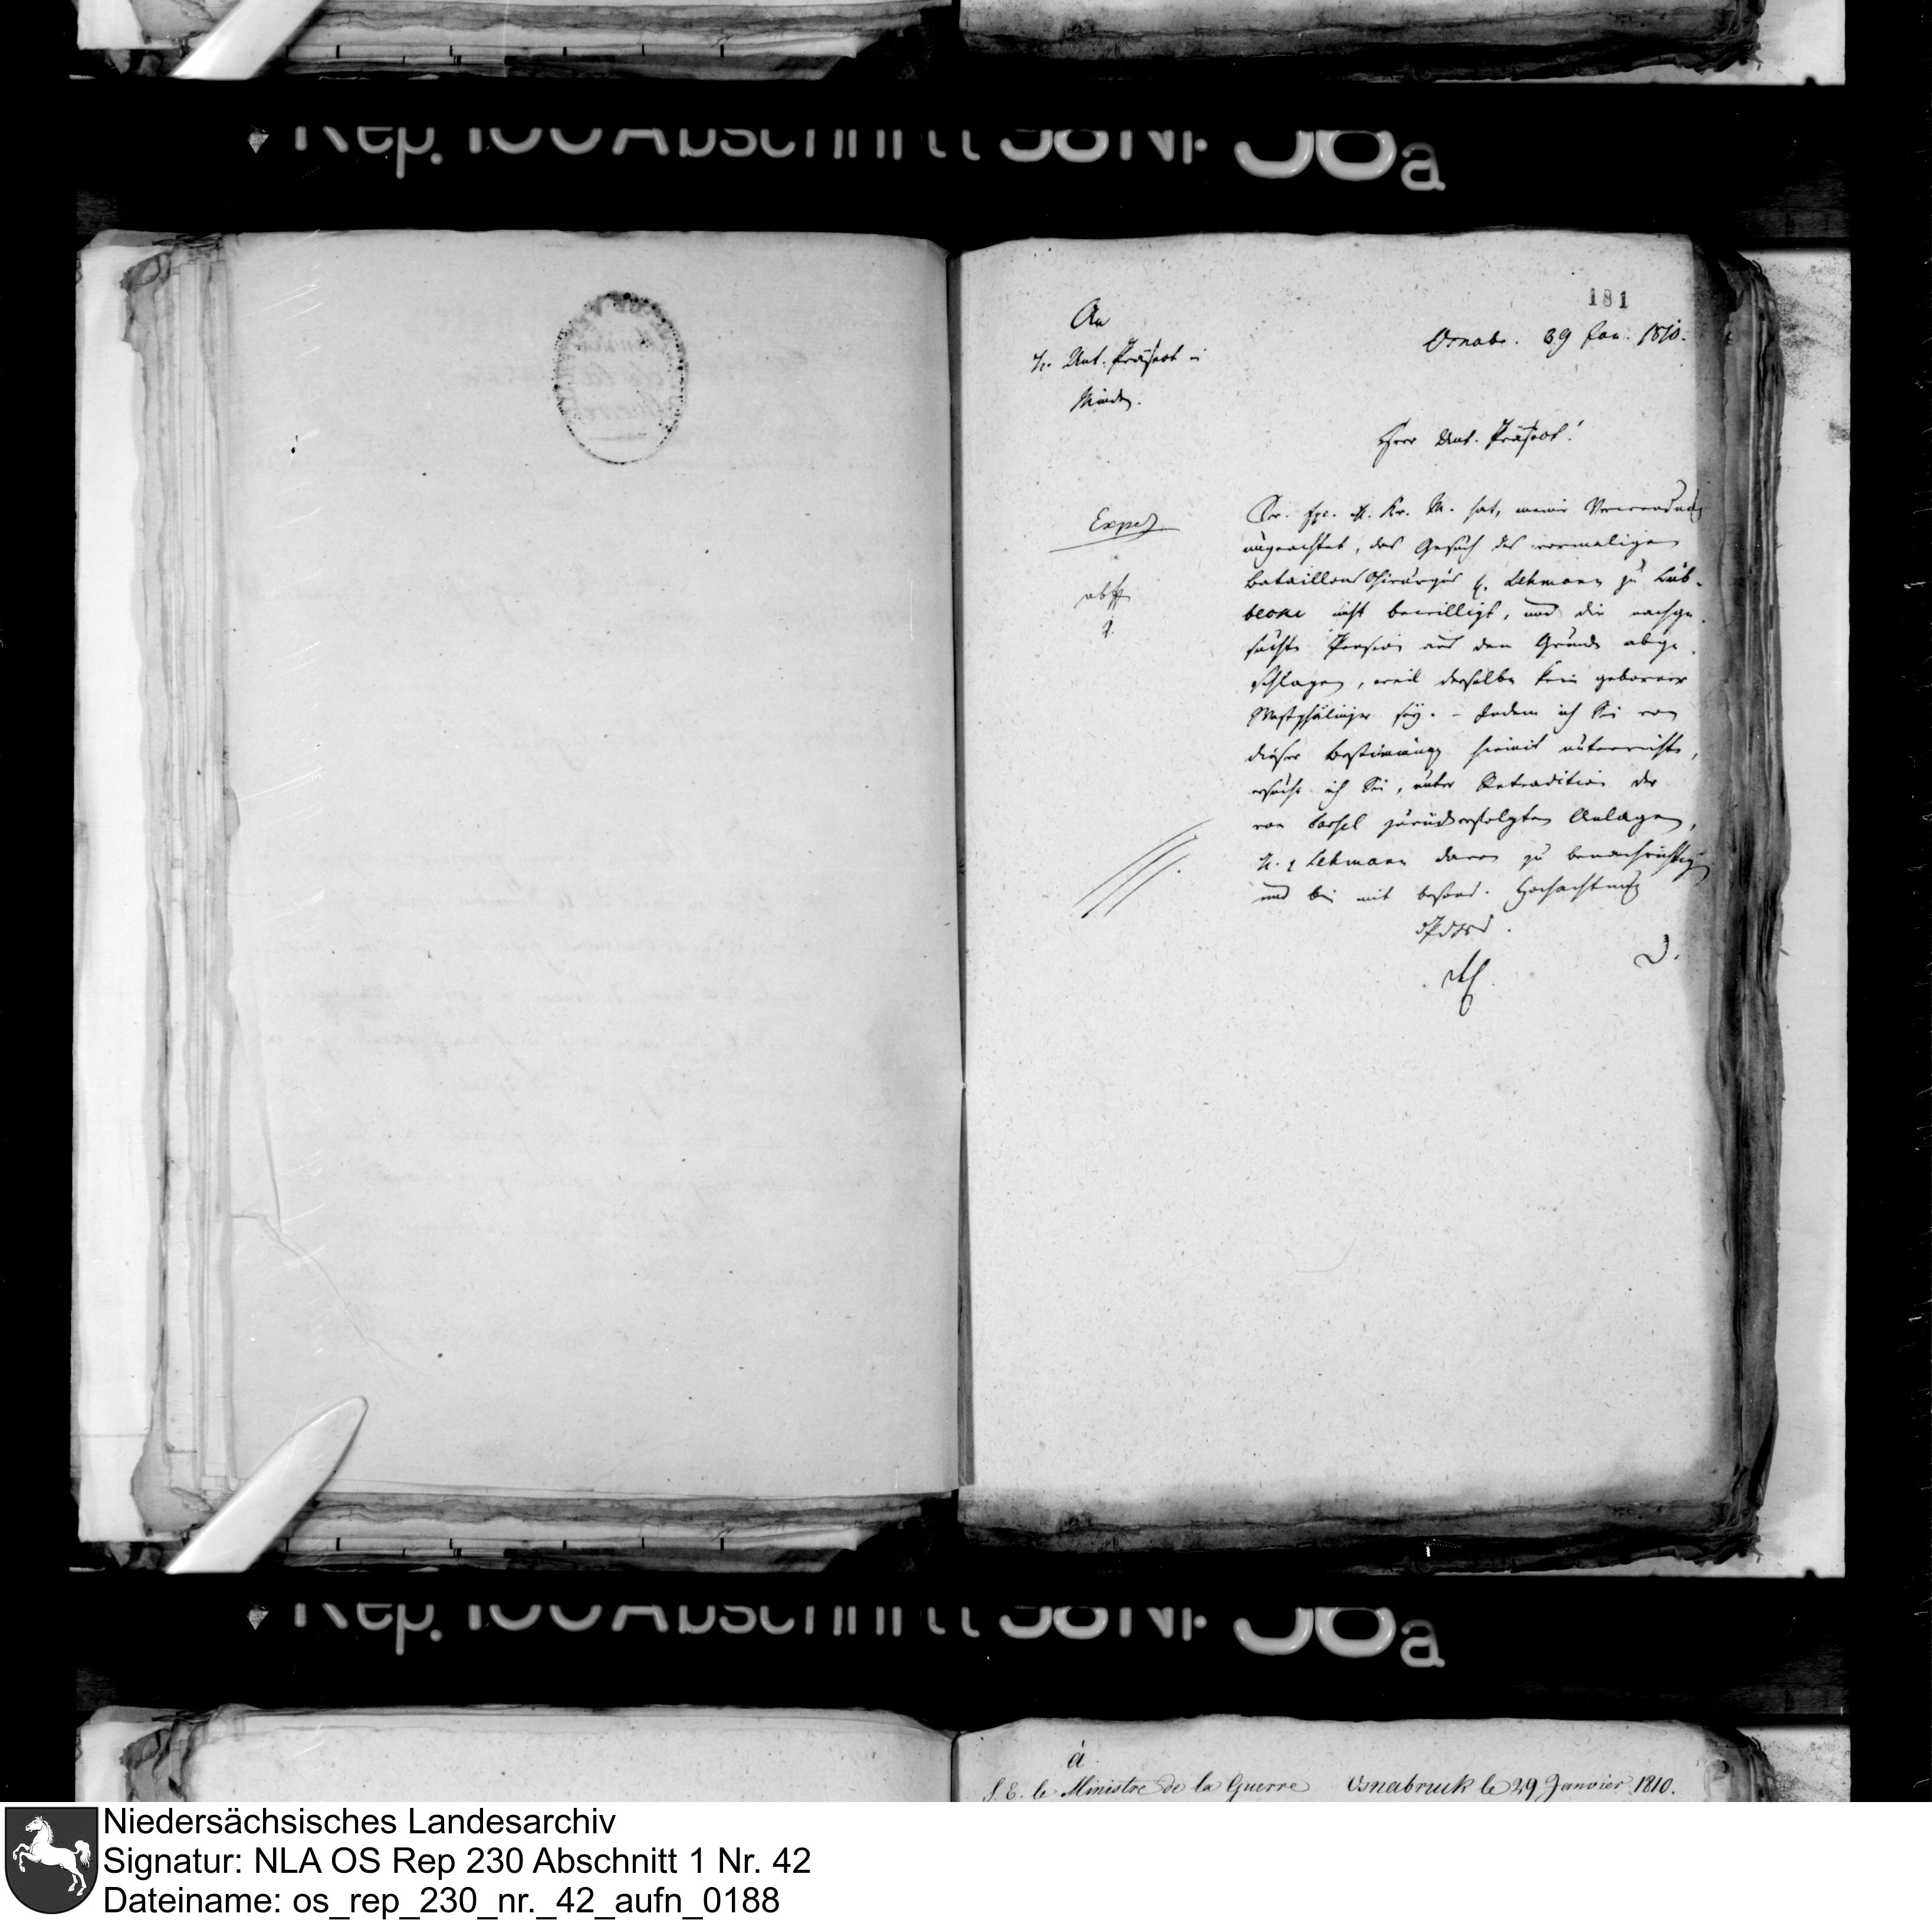 Rep. 100 Abschnitt 58 Nr. 38a
181
An
H. Unt. Präfect in
Minden.
Osnabr. 29 Jan. 1810.
Herr Unt. Präfect!
Exped
Sr. Exc. H. Kr. M. hat, meiner Verwendung
ungeachtet, das Gesuch des vormaligen
Bataillons Chirurgus H. Lehmann zu Lüb-
becke nicht bewilligt, und die nachge-
suchte Pension aus dem Grunde abge-
schlagen, weil derselbe kein geborner
Westphälinger sey. – Indem ich Sie von
dieser Bestimmung hiemit unterrichte,
ersuche ich Sie, unter Retradition der
von Cassel zurückerfolgten Anlagen,
H. Lehmann davon zu benachrichtigen
und bin mit besond. Hochachtung
D.
Rep. 100 Abschnitt 58 Nr. 38a
à
S. E. le Ministre de la Guerre Osnabruck le 29 Janvier 1810.
Niedersächsisches Landesarchiv
Signatur: NLA OS Rep 230 Abschnitt 1 Nr. 42
Dateiname: os_rep_230_nr._42_aufn_0188